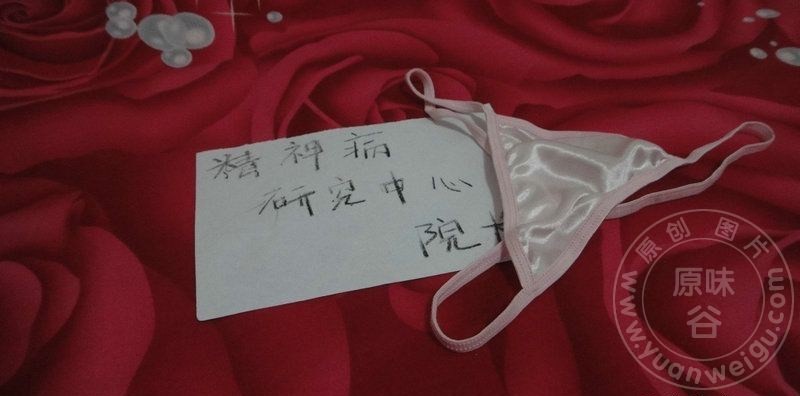 精神病
研究中心
院
原创图片
原味谷
www.yuanweigu.com